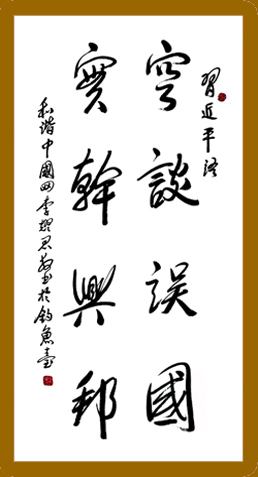 習近平语
空談誤國
實幹興邦
和諧中國网李君书於釣魚臺